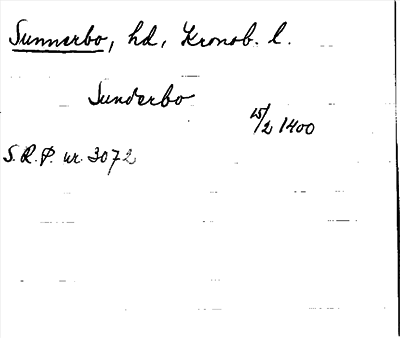 Sunnerbo, hd, Kronob. l.
Sunderbo
15/2 1400
S.R.P. nr. 3072